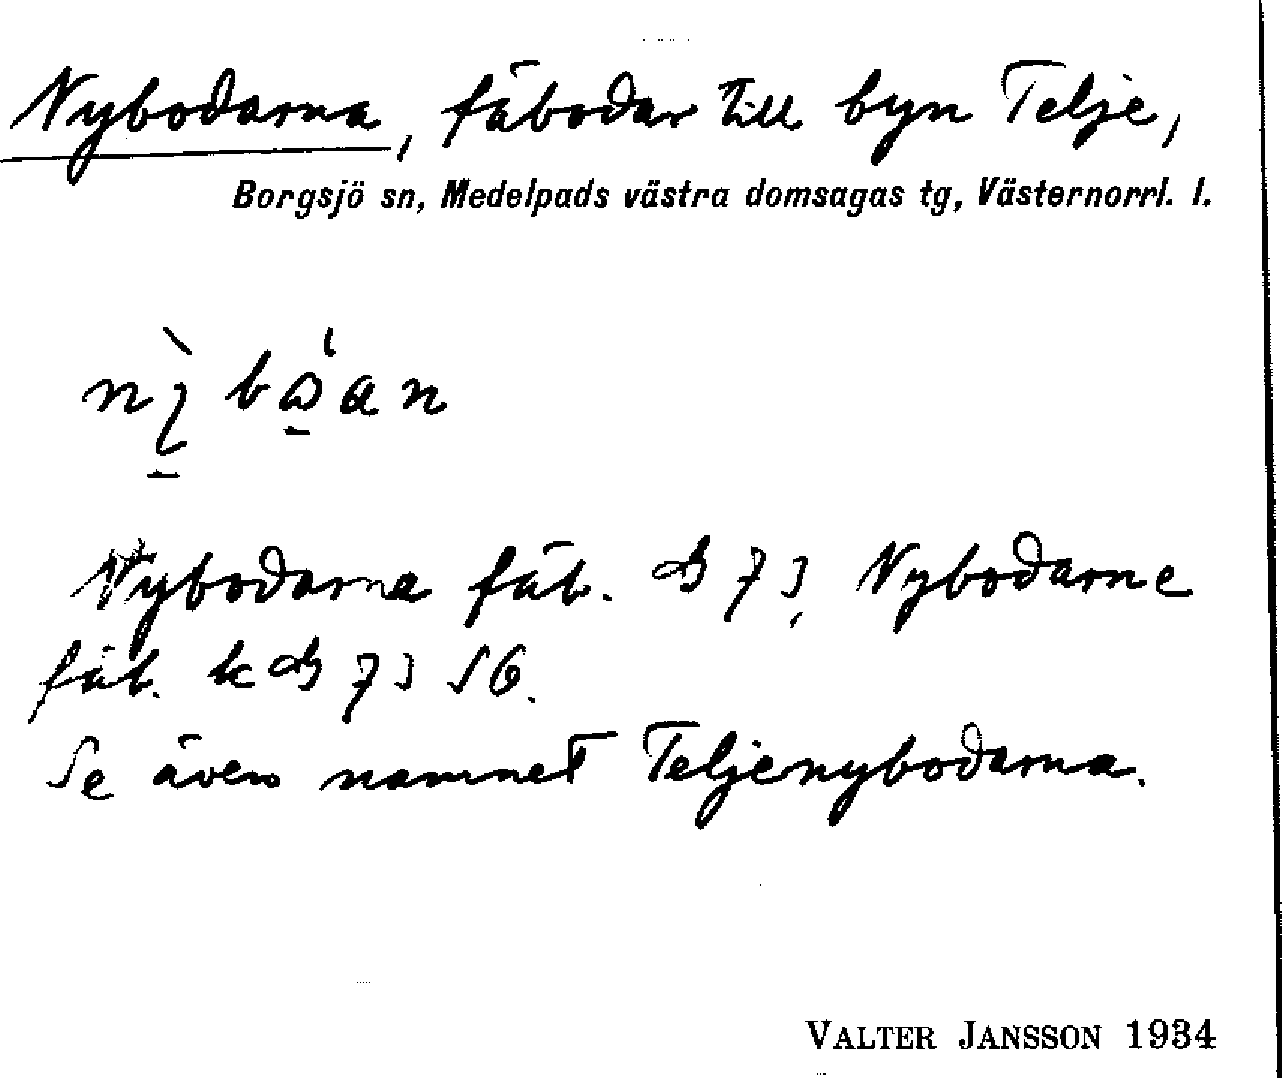 Nybodarna, fäbodar till byn Telje,
Borgsjö sn, Medelpads västra domsagas tg, Västernorrl. l.
Nybodarna fäb. 73, Nybodarne
fäb. k 73 56.
Se även namnet Teljenybodarna.
VALTER JANSSON 1934